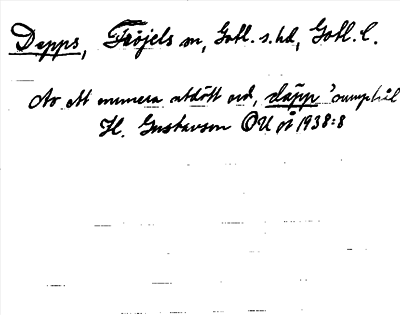 Depps, Fröjels sn, Gotl. s. hd, Gotl. l.
Av ett numera utdött ord, däpp 'sumphål'
H. Gustavson OU på 1938:8